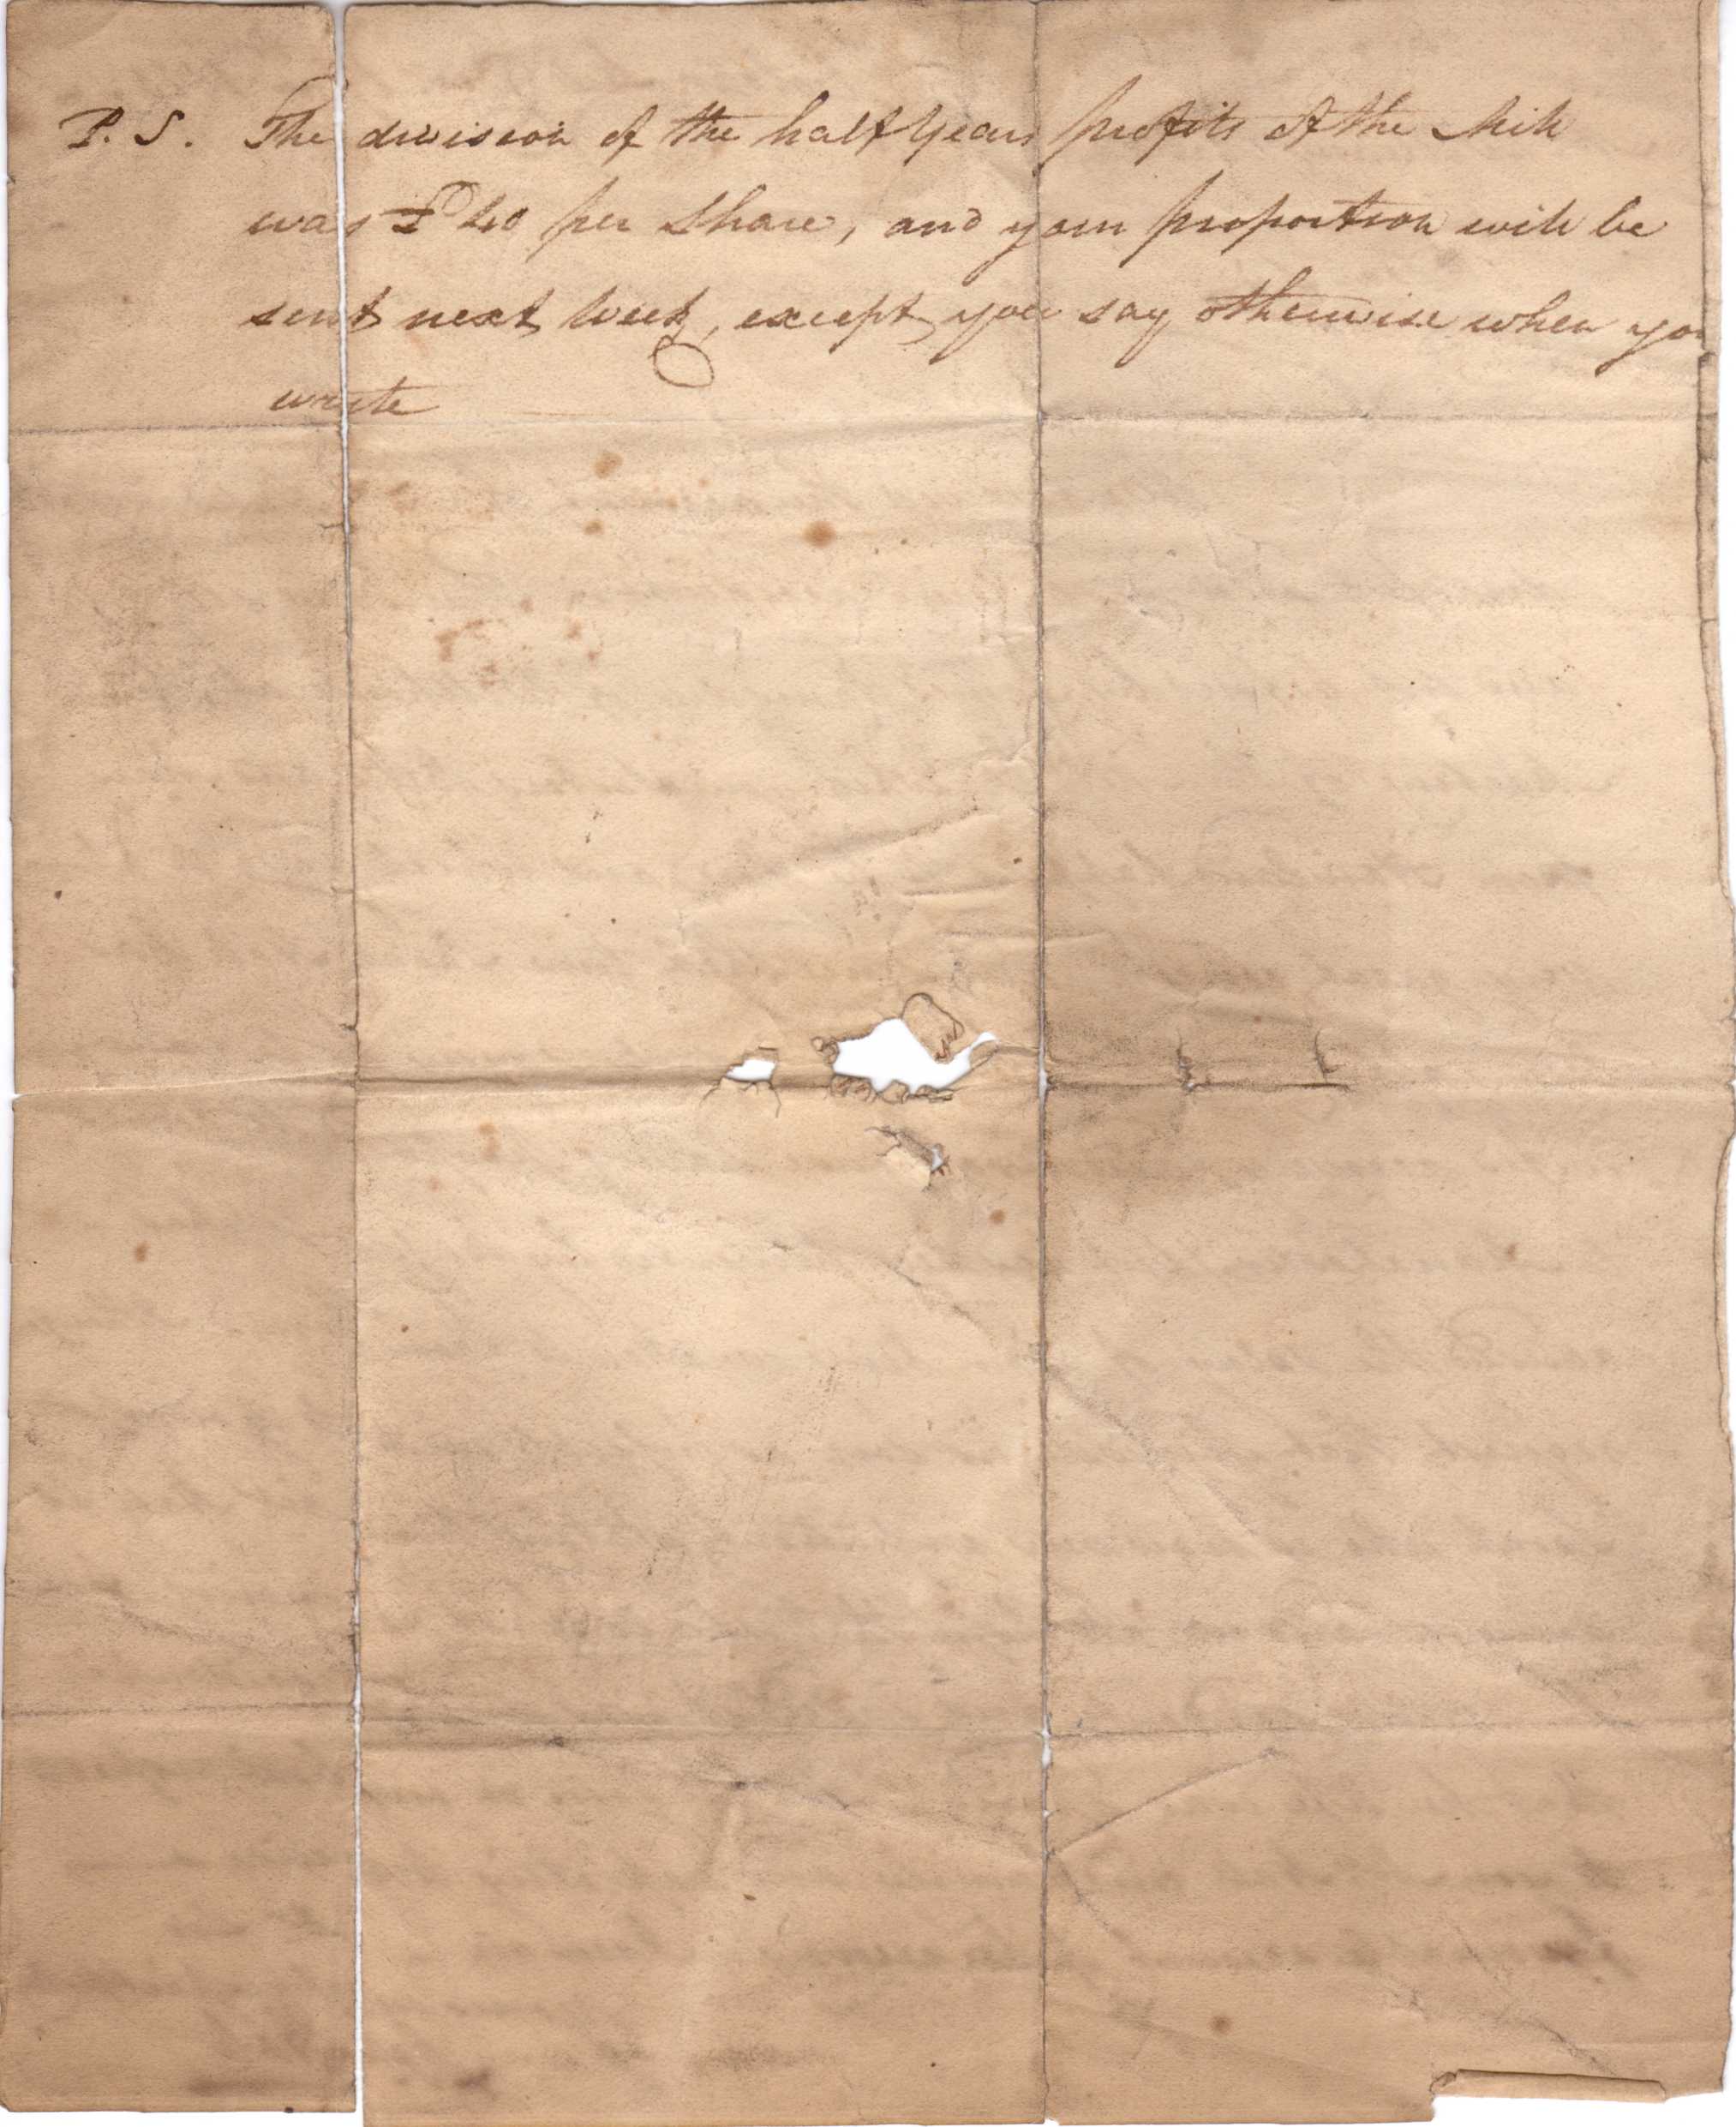 P. S. The division of the half years profits of the Mill
was £40 per Share, and your proportion will be
sent next week, except you say otherwise when you
write